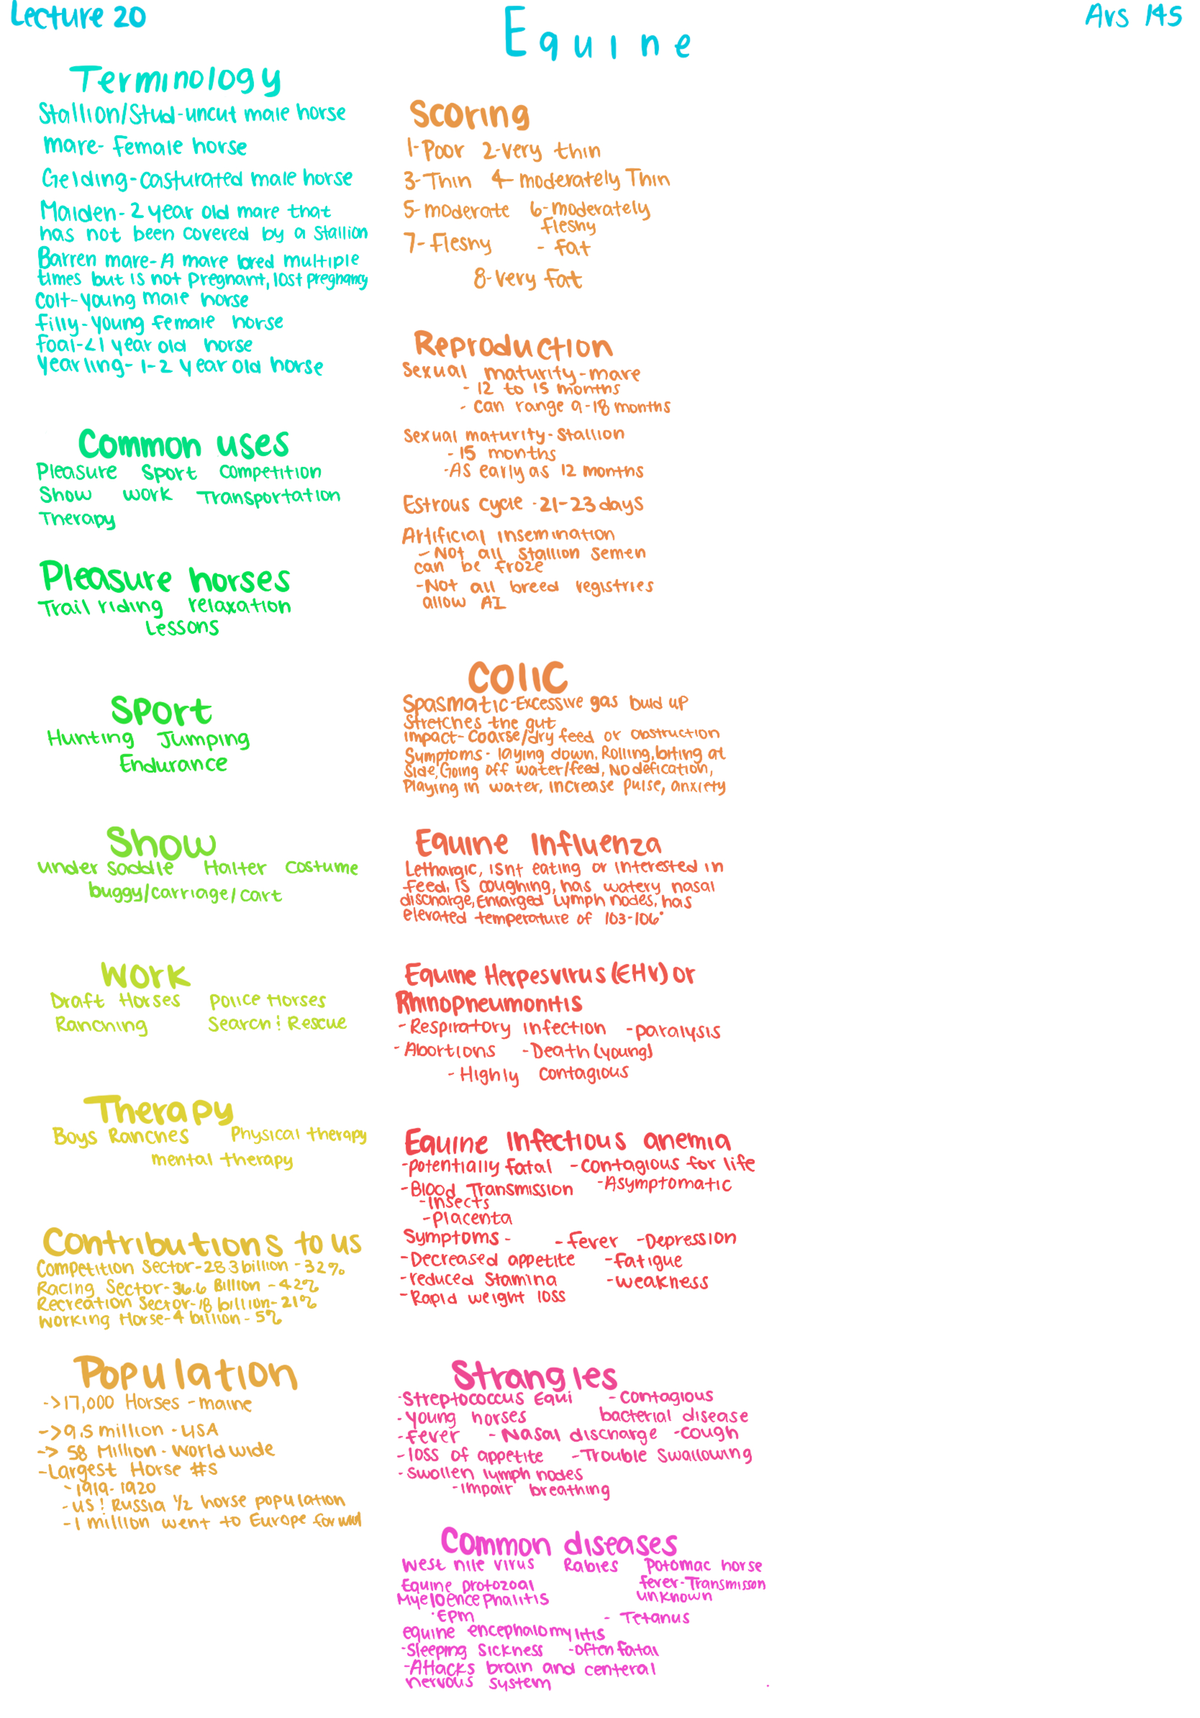 Lecture 20
Equine
Avs 145
Terminology
Stallion/Stud-uncut male horse
mare- female horse
Gelding-casturated male horse
Maiden- 2 year old mare that
has not been covered by a Stallion
Barren mare-A mare bred multiple
times but is not pregnant, lost pregnancy
Colt-young male horse
filly-young female horse
foal-<1 year old horse
Yearling- 1-2 year old horse
Common uses
Pleasure Sport Competition
Show work Transportation
Therapy
Pleasure horses
Trail riding relaxation
Lessons
Sport
Hunting Jumping
Endurance
Show
under saddle Halter Costume
buggy/carriage/cart
Work
Draft Horses Police Horses
Ranching Search & Rescue
Therapy
Boys Ranches Physical therapy
mental therapy
Contributions to us
Competition Sector-28.3 billion-32%
Racing Sector-36.6 Billion-42%
Recreation Sector-18 billion-21%
Working Horse-4 billion-5%
Population
->17,000 Horses-maine
->9.5 million-USA
-> 58 Million-Worldwide
-Largest Horse #s
-1919-1920
-US & Russia 1/2 horse population
-1 million went to Europe for
Scoring
1-Poor 2-very thin
3-Thin 4-moderately Thin
5-moderate 6-moderately
fleshy
7-Fleshy - fat
8-very fat
Reproduction
Sexual maturity-mare
- 12 to 15 months
- can range 9-18 months
Sexual maturity-Stallion
- 15 months
-As early as 12 months
Estrous cycle -21-23 days
Artificial insemination
-Not all stallion semen
can be froze
-Not all breed registries
allow AI
COlIC
Spasmatic-Excessive gas buid up
Stretches the gut
Impact-Coarse/dry feed or obstruction
Symptoms-laying down, Rolling, biting at
side, Going off water/feed, No defication,
Playing in water, increase pulse, anxiety
Equine Influenza
Lethargic, isnt eating or interested in
feed, is coughing, has watery nasal
discharge, Enlarged Lymph nodes, has
elevated temperature of 103-106°
Equine Herpesvirus (EHV) or
Rhinopneumonitis
-Respiratory infection -paralysis
-Abortions -Death (young)
-Highly contagious
Equine Infectious anemia
-potentially fatal -contagious for life
-Blood Transmission -Asymptomatic
-Insects
-Placenta
Symptoms- -fever -Depression
-Decreased appetite -fatigue
-reduced Stamina -weakness
-Rapid weight loss
Strangles
-Streptococcus Equi -contagious
-young horses bacterial disease
-fever -Nasal discharge -cough
-loss of appetite -Trouble Swallowing
-Swollen lymph nodes
-Impair breathing
Common diseases
West nile virus Rabies Potomac horse
Equine protozoal fever-Transmisson
Myeloencephalitis unknown
·EPM - Tetanus
equine encephalomylitis
-Sleeping Sickness -often fatal
-Attacks brain and centeral
nervous system